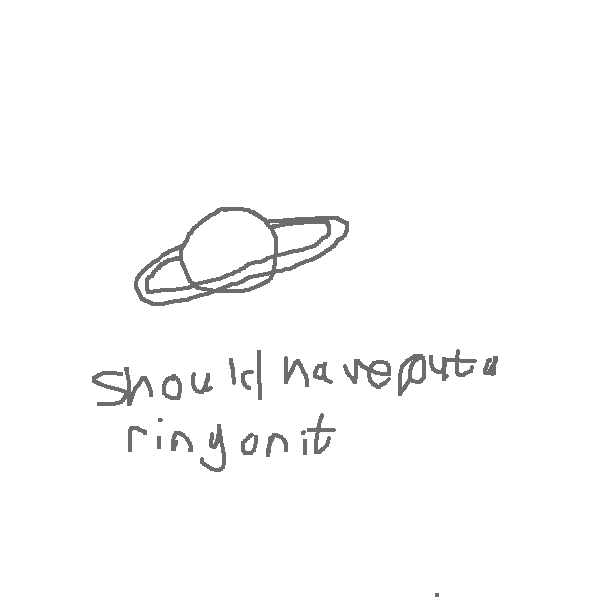 should have put a
ring on it